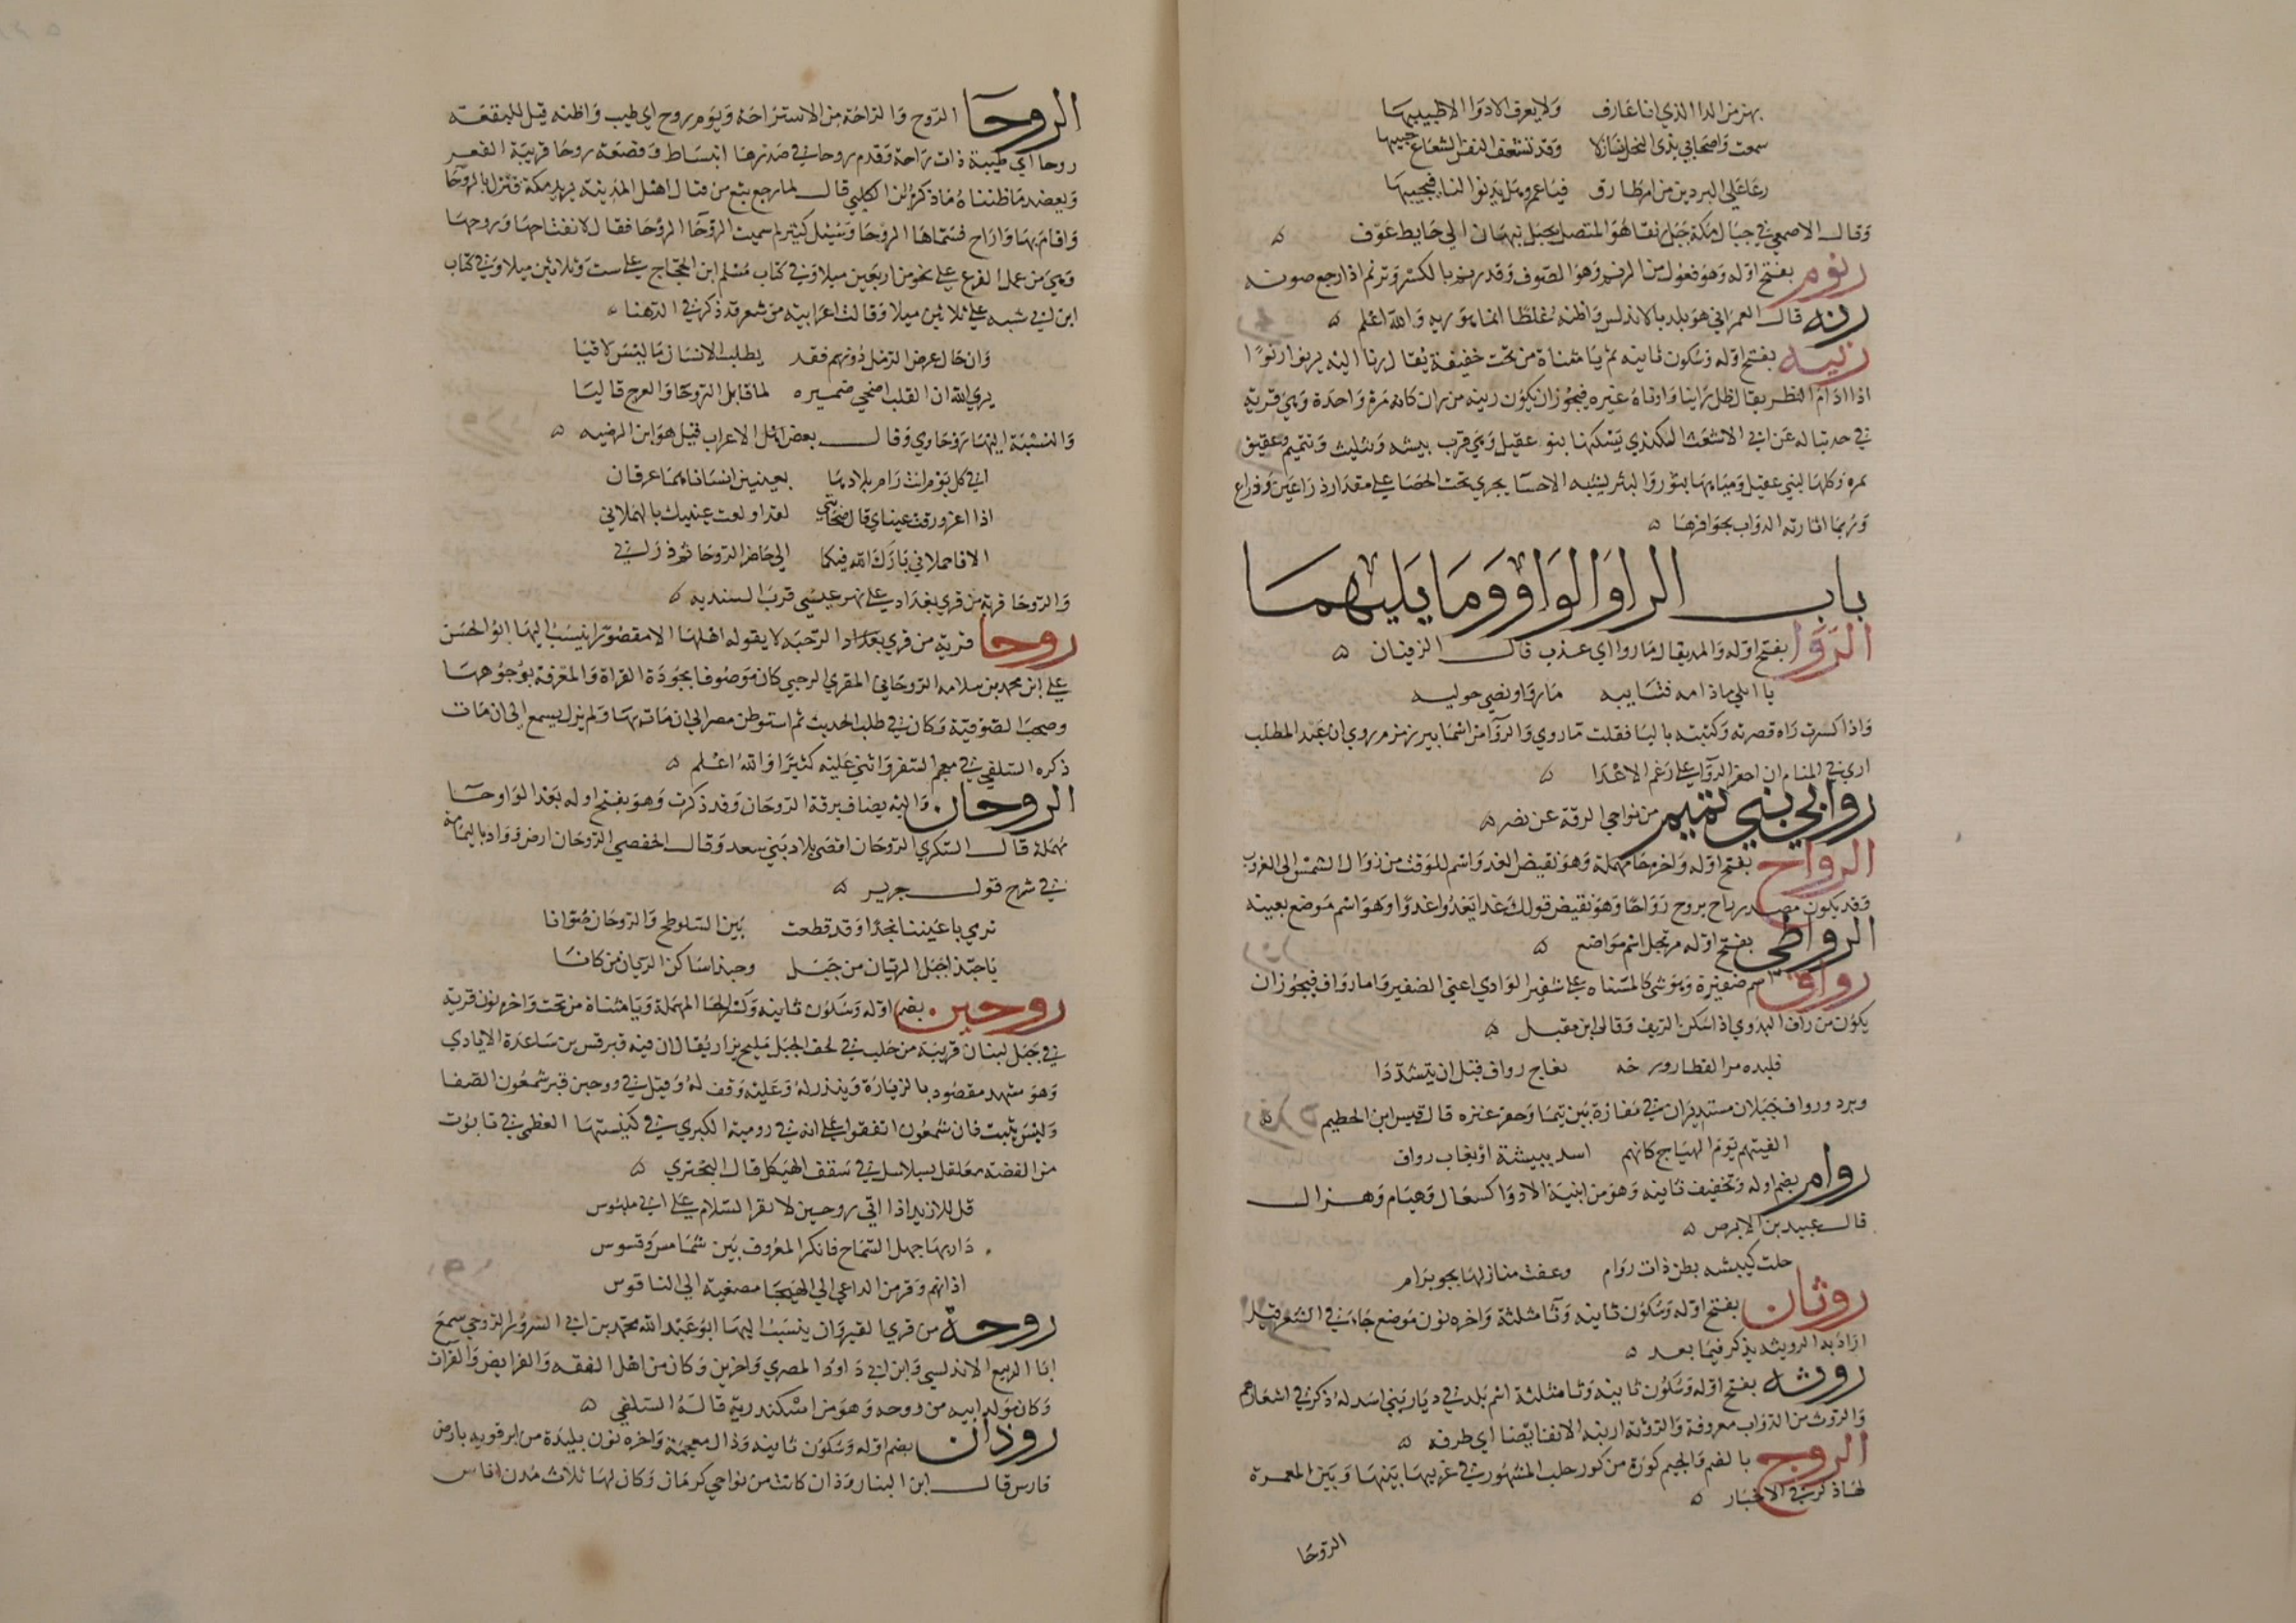 بهز من الدا الذي انا عارف ولا يعرف الادوا الا طبيبها
سمعت واصحابي بذي النخل نازلا وقد تشغف النفس الشعاع حبيبها
دعا على البردين من امطارق فيا عمرو هل يدنوا لنا فيجيبها
وقال الاصمعي في جبال مكة جبل نقا هو المتصل بجبل نبهان الي حايط عوف
رنوم بفتح اوله وهو فعول من الرنم وهو الصوف وقد رنم بالكسر وترنم اذا رجع صوته
رنه قال العمراني هو بلد بالاندلس واظنه غلطا انما هو ريه والله اعلم
رنيه بفتح اوله وسكون ثانيه ثم يا مثناة من تحت خفيفة يقال رنا اليه يرنوا رنوا
اذا ادام النظر يقال ظل رانيا وارناه غيره فيجوز ان يكون رنيه من رات كانه مرة واحدة وهي قرية
في حد تباله عن ابي الاشعث الكندي يسكنها بنو عقيل وهي قرب بيشه وتثليث ويتميم وعقيق
تمره وكلها لبني عقيل ومياهها بثور والبثر يشبه الاحسا يجري تحت الحصا علي مقدار ذراعين وذراع
وربما اثارته الدواب بحوافرها
باب الراو الواو وما يليهما
الروا بفتح اوله والمد يقال ماروا اي عذب قال الزفيان
يا ابلي ماذا مه فتابيه ما روا ونصي حوليه
واذا كسرت راه قصرته وكتبته باليا فقلت ما روي والروا من اسما بير زمزم روي ان عبد المطلب
اري في المنام ان احفر الروا علي رغم الاعدا
روابي بني تميم من نواحي الرقة عن نصر
الرواح بفتح اوله واخره حا مهملة وهو نقيض الغد واسم للوقت من زوال الشمس الي الغروب
وقد يكون مصدر راح يروح رواحا وهو نقيض قولك غدا يغدوا غدوا وهو اسم موضع بعينه
الرواطي بفتح اوله مرتجل اسم مواضع
رواف اسم ضفيرة وهو شي كالمسناه علي شفير الوادي اعني الضفير واما رواف فيجوز ان
يكون من راف البدوي اذا سكن الريف وقال ابن مقبل
فلبده مر القطار ورخه نعاج رواف قبل ان يتشددا
وبرد ورواف جبلان مستديران في مفازة بين تيما وحفر عنزه قال قيس ابن الخطيم
الفيتهم يوم الهياج كانهم اسد ببيشة او بغاب رواف
روام بضم اوله وتخفيف ثانيه وهو من ابنية الادوا كسعال وهيام وهزال
قال عبيد بن الابرص
حلت كبيشه بطن ذات روام وعفت منازلها بجو برام
روثان بفتح اوله وسكون ثانيه وثا مثلثة واخره نون موضع جا في الشعر قيل
اراد به الرويثه يذكر فيما بعد
روثه بفتح اوله وسكون ثانيه وثا مثلثة اسم بلد في ديار بني اسد له ذكر في اشعارهم
والروث من الدواب معروفة والروثة ارنبه الانف ايضا اي طرفه
الروج بالضم والجيم كورة من كور حلب المشهور في غربيها بينها وبين المعرة
لها ذكر في الاخبار
الروحا
الروحا الروح والراحة من الاستراحة ويوم روح اي طيب واظنه قيل للبقعة
روحا اي طيبة ذات راحة وقدم روحا في صدرها انبساط وقصعة روحا قريبة القعر
ويعضد ما ظنناه ما ذكره ابن الكلبي قال لما رجع تبع من قتال اهل المدينة يريد مكة فنزل بالروحا
واقام بها واراح فسماها الروحا وسيل كثير لم سميت الروحا الروحا فقال لانفتاحها وروحها
وهي من عمل الفرع علي نحو من اربعين ميلا وفي كتاب مسلم ابن الحجاج علي ست وثلاثين ميلا وفي كتاب
ابن ابي شيبه علي ثلاثين ميلا وقالت اعرابية من شعر قد ذكر في الدهنا
وان حال عرض الرمل دونهم فقد يطلب الانسان ما ليس لاقيا
يري الله ان القلب اضحي ضميره لما قابل الروحا والعرج قاليا
والنسبة اليها روحاوي وقال بعض اهل الاعراب قيل هو ابن الرضيه
افي كل يوم انت رام بلادها بعينين انسانا هما غرقان
اذا اغرورقت عيناي قال صحابتي لقد اولعت عينيك بالهملاني
الا فاحملاني بارك الله فيكما الي حاضر الروحا ثم ذراني
والروحا قرية من قري بغداد علي نهر عيسي قرب السنديه
روحا قرية من قري بغداد الرحبه لا يقوله اهلها الا مقصورا ينسب اليها ابو الحسن
علي ابن محمد بن سلامه الروحاني المقري الرحبي كان موصوفا بجودة القراة والمعرفة بوجوهها
وصحب الصوفية وكان في طلب الحديث ثم استوطن مصر الي ان مات بها ولم يزل يسمع الي ان مات
ذكره السلفي في معجم السفر واثني عليه كثيرا والله اعلم
الروحان واليه يضاف برقة الروحان وقد ذكرت وهو بفتح اوله بعد الواو حا
مهملة قال السكري الروحان اقصي بلاد بني سعد وقال الحفصي الروحان ارض وواد باليمامة
في شرح قول جرير
ترمي باعيننا نجدا وقد قطعت بين السلوطح والروحان صوانا
يا حبذا جبل الريان من جبل وحبذا ساكن الريان من كانا
روحين بضم اوله وسكون ثانيه وكسر الحا المهملة ويا مثناة من تحت واخره نون قرية
في جبل لبنان قريبة من حلب في لحف الجبل مليح يزار يقال ان فيه قبر قس بن ساعدة الايادي
وهو مشهد مقصود بالزيارة وينذر له وعليه وقف له وقيل في ووحين قبر شمعون الصفا
وليس بثبت فان شمعون اتفقوا علي انه في رومية الكبري في كنيستها العظمي في تابوت
من الفضة معلقل بسلاسل في سقف الهيكل قال البحتري
قل للازيد اذا اتي روحين لا تقرا السلام علي ابي ملبوس
دار بها جهل السماح فانكر المعروف بين شمامس وقسوس
اذانهم وقر من الداعي الي الهيجا مصغية الي الناقوس
روحة من قري القيروان ينسب اليها ابو عبد الله محمد بن ابي السرور الروحي سمع
ابا الربيع الاندلسي وابن ابي داود المصري واخرين وكان من اهل الفقه والفرايض والقرات
وكان مولد ابيه من روحه وهو من اسكندرية قاله السلفي
روذان بضم اوله وسكون ثانيه وذال معجمة واخره نون بليدة من ابرقويه بارض
فارس قال ابن البنا روذان كانت من نواحي كرمان وكان لها ثلاث مدن اناس